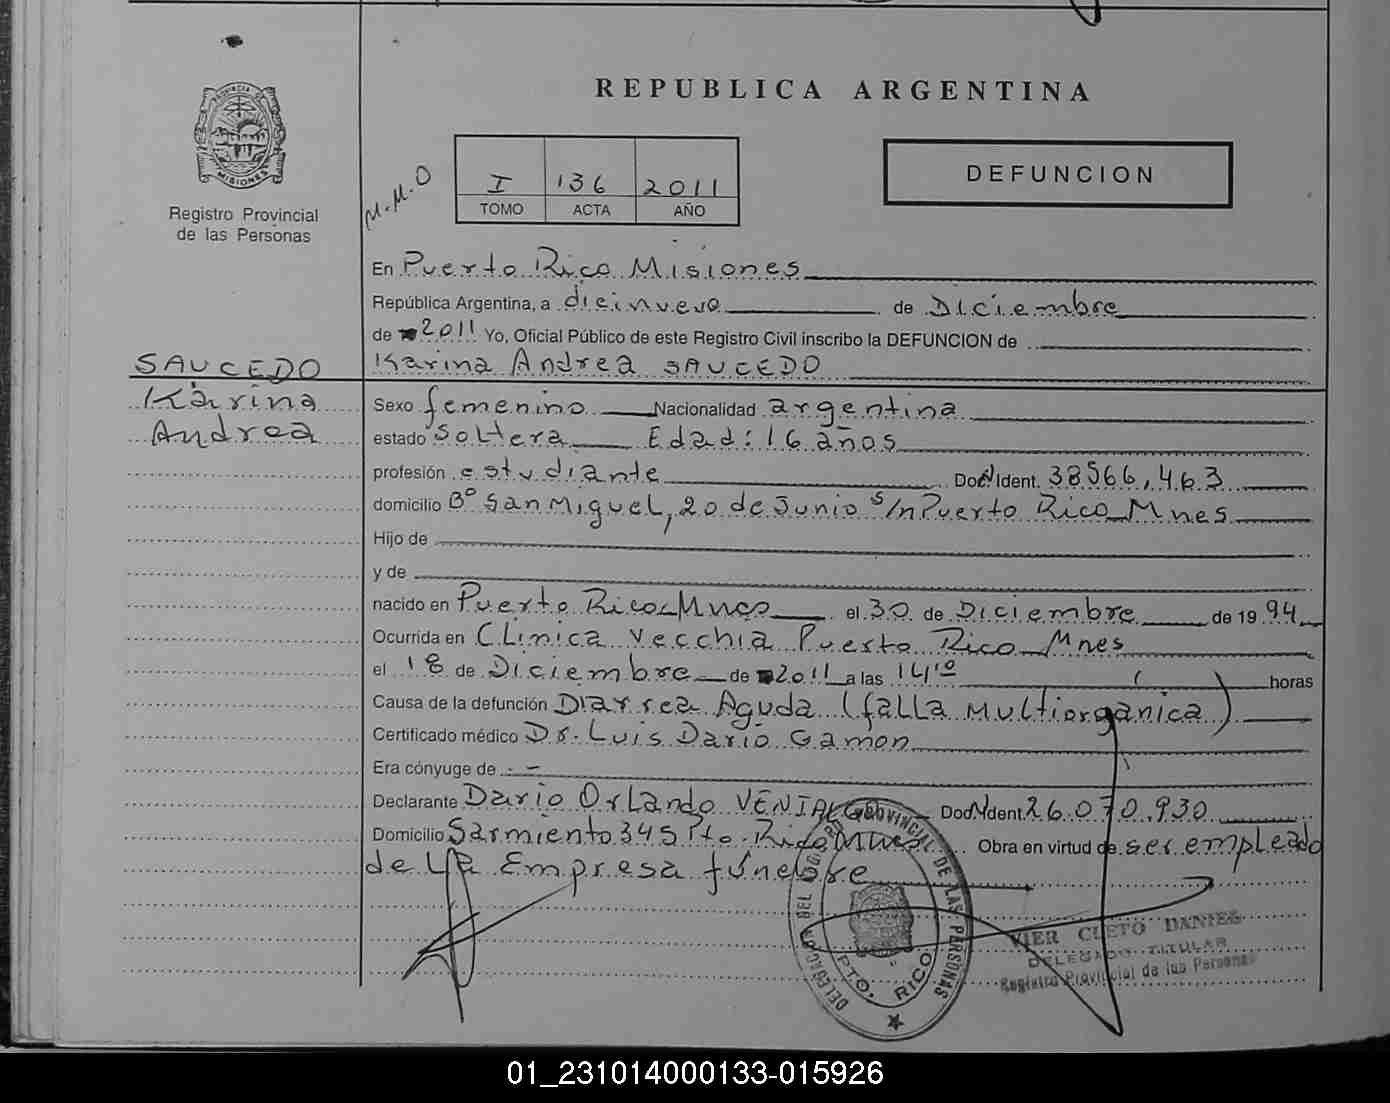 REPUBLICA ARGENTINA
PROVINCIA DE
MISIONES
Registro Provincial
de las Personas
M.M.O
I 136 2011
TOMO ACTA AÑO
DEFUNCION
En Puerto Rico Misiones
República Argentina, a diecinueve de Diciembre
de 2011 Yo, Oficial Público de este Registro Civil inscribo la DEFUNCION de
Karina Andrea SAUCEDO
SAUCEDO
Karina
Andrea
Sexo femenino Nacionalidad argentina
estado Soltera Edad: 16 años
profesión estudiante Doc. N Ident. 38566.463
domicilio Bº San Miguel, 20 de Junio s/n Puerto Rico Mnes
Hijo de
y de
nacido en Puerto Rico Mnes el 30 de Diciembre de 1994
Ocurrida en Clinica Vecchia Puerto Rico Mnes
el 18 de Diciembre de 2011 a las 14¹⁰ ( ) horas
Causa de la defunción Diarrea Aguda (falla Multiorganica)
Certificado médico Dr. Luis Dario Gamon
Era cónyuge de -.-
Declarante Dario Orlando VENIALGO Doc. N Ident. 26.070.930
Domicilio Sarmiento 345 Pto Rico Mnes Obra en virtud de ser empleado
de La Empresa fúnebre
DELEGACION DEL REGISTRO PROVINCIAL DE LAS PERSONAS
PTO. RICO
VIER CUETO DANIEL
DELEGADO TITULAR
Registro Provincial de las Personas
01_231014000133-015926